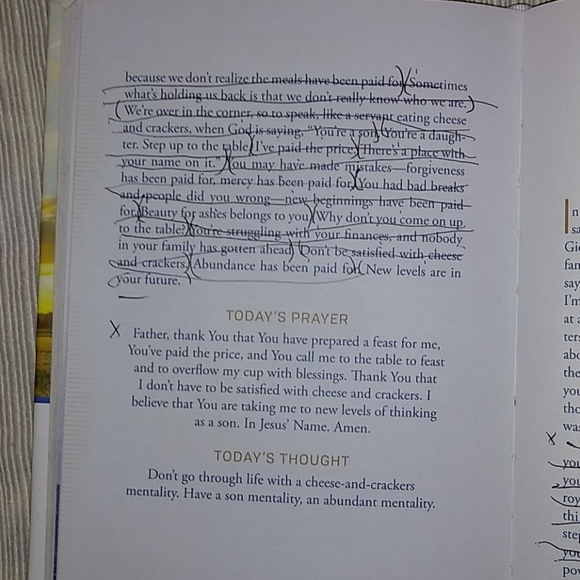 because we don't realize the meals have been paid for. Sometimes
what's holding us back is that we don't really know who we are.
We're over in the corner, so to speak, like a servant eating cheese
and crackers, when God is saying, "You're a son. You're a daugh-
ter. Step up to the table. I've paid the price. There's a place with
your name on it." You may have made mistakes—forgiveness
has been paid for, mercy has been paid for. You had bad breaks
and people did you wrong—new beginnings have been paid
for. Beauty for ashes belongs to you. Why don't you come on up
to the table? You're struggling with your finances, and nobody
in your family has gotten ahead. Don't be satisfied with cheese
and crackers. Abundance has been paid for. New levels are in
your future.
TODAY'S PRAYER
X Father, thank You that You have prepared a feast for me,
You've paid the price, and You call me to the table to feast
and to overflow my cup with blessings. Thank You that
I don't have to be satisfied with cheese and crackers. I
believe that You are taking me to new levels of thinking
as a son. In Jesus' Name. Amen.
TODAY'S THOUGHT
Don't go through life with a cheese-and-crackers
mentality. Have a son mentality, an abundant mentality.
I'm
at a
the
you
X
you
you
roy
thi
step
you
pow